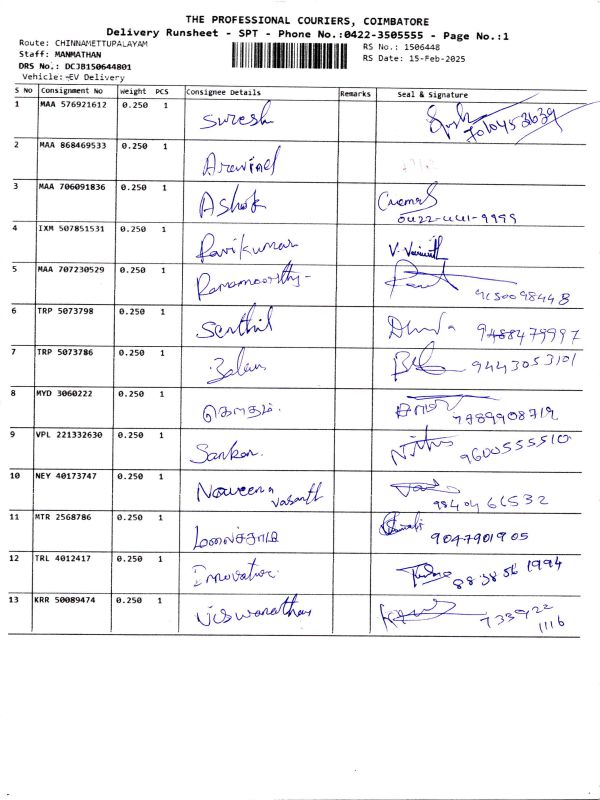 THE PROFESSIONAL COURIERS, COIMBATORE
Delivery Runsheet - SPT - Phone No.:0422-3505555 - Page No.:1
Route: CHINNAMETTUPALAYAM
RS No.: 1506448
Staff: MANMATHAN
RS Date: 15-Feb-2025
DRS No.: DCJB150644801
Vehicle: EV Delivery
S No Consignment No Weight PCS Consignee Details Remarks Seal & Signature
1 MAA 576921612 0.250 1 Suresh
2 MAA 868469533 0.250 1 Aravind
3 MAA 706091836 0.250 1 Ashok
0422-4441-9999
4 IXM 507851531 0.250 1 Ravikumar V. Vainith
5 MAA 707230529 0.250 1 Ramamoorthy
9150098448
6 TRP 5073798 0.250 1 Senthil 9488479997
7 TRP 5073786 0.250 1 Balan 9443053101
8 MYD 3060222 0.250 1 கௌதம்.
7789908712
9 VPL 221332630 0.250 1 Sankar. Nithis 9600555510
10 NEY 40173747 0.250 1 Naveena Vasanth
9840466532
11 MTR 2568786 0.250 1 9047901905
12 TRL 4012417 0.250 1 Innovative. 88 38 56 1994
13 KRR 50089474 0.250 1 Viswanathan 733922
1116